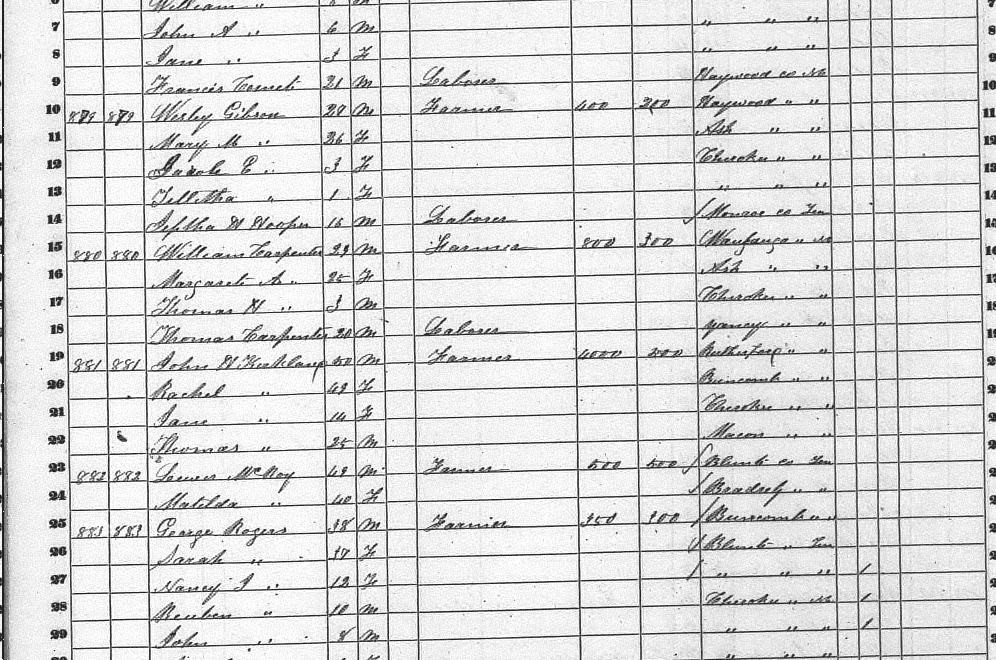 William "
7 John A " 6 M " " "
8 Jane " 3 F " " "
9 Francis 21 M Laborer Haywood co Nc
10 879 879 Wesley Gibson 29 M Farmer 400 200 Haywood " "
11 Mary M " 26 F Ash " "
12 E " 3 F Cherokee " "
13 Tellitha " 1 F " " "
14 Jeptha H Hooper 16 M Laborer / Monroe co Ten
15 880 880 William Carpenter 29 M Farmer 800 300 "
16 Margarett A " 25 F Ash " "
17 Thomas H " 3 M Cherokee " "
18 Thomas Carpenter 20 M Laborer Yancey " "
19 881 881 John H Kirkland 50 M Farmer 4000 500 Rutherford " "
20 Rachel " 49 F Buncomb " "
21 Jane " 14 F Cherokee " "
22 Thomas " 25 M Macon " "
23 882 882 McKoy 49 M Farmer 500 500 / Blunt co Ten
24 Matilda " 40 F / " "
25 883 883 George Rogers 38 M Farmer 350 100 / Buncomb " "
26 Sarah " 37 F / Blunt " Ten
27 Nancy J " 12 F / " " " 1
28 Reuben " 10 M Cherokee " Nc 1
29 John " 8 M " " " 1